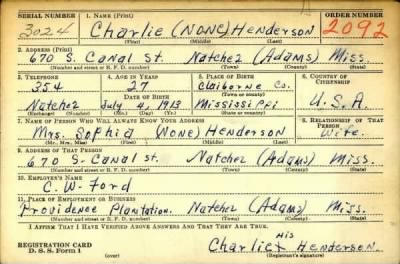 SERIAL NUMBER 1. NAME (Print) ORDER NUMBER
3024 Charlie (NONE) Henderson 2092
(First) (Middle) (Last)
2. ADDRESS (Print)
670 S. Canal St. Natchez (Adams) Miss.
(Number and street or R. F. D. number) (Town) (County) (State)
3. TELEPHONE 4. AGE IN YEARS 5. PLACE OF BIRTH 6. COUNTRY OF CITIZENSHIP
354 27 Claiborne Co.
DATE OF BIRTH (Town or county)
Natchez July 4, 1913 Mississippi U.S.A.
(Exchange) (Number) (Mo.) (Day) (Yr.) (State or country)
7. NAME OF PERSON WHO WILL ALWAYS KNOW YOUR ADDRESS 8. RELATIONSHIP OF THAT PERSON
Mrs. Sophia (None) Henderson Wife.
(Mr., Mrs., Miss) (First) (Middle) (Last)
9. ADDRESS OF THAT PERSON
670 S. Canal st. Natchez (Adams) Miss.
(Number and street or R. F. D. number) (Town) (County) (State)
10. EMPLOYER'S NAME
C. W. Ford
11. PLACE OF EMPLOYMENT OR BUSINESS
Providence Plantation. Natchez (Adams) Miss.
(Number and street or R. F. D. number) (Town) (County) (State)
I AFFIRM THAT I HAVE VERIFIED ABOVE ANSWERS AND THAT THEY ARE TRUE.
His
REGISTRATION CARD Charlie x Henderson.
D. S. S. Form 1 (over) (Registrant's signature)